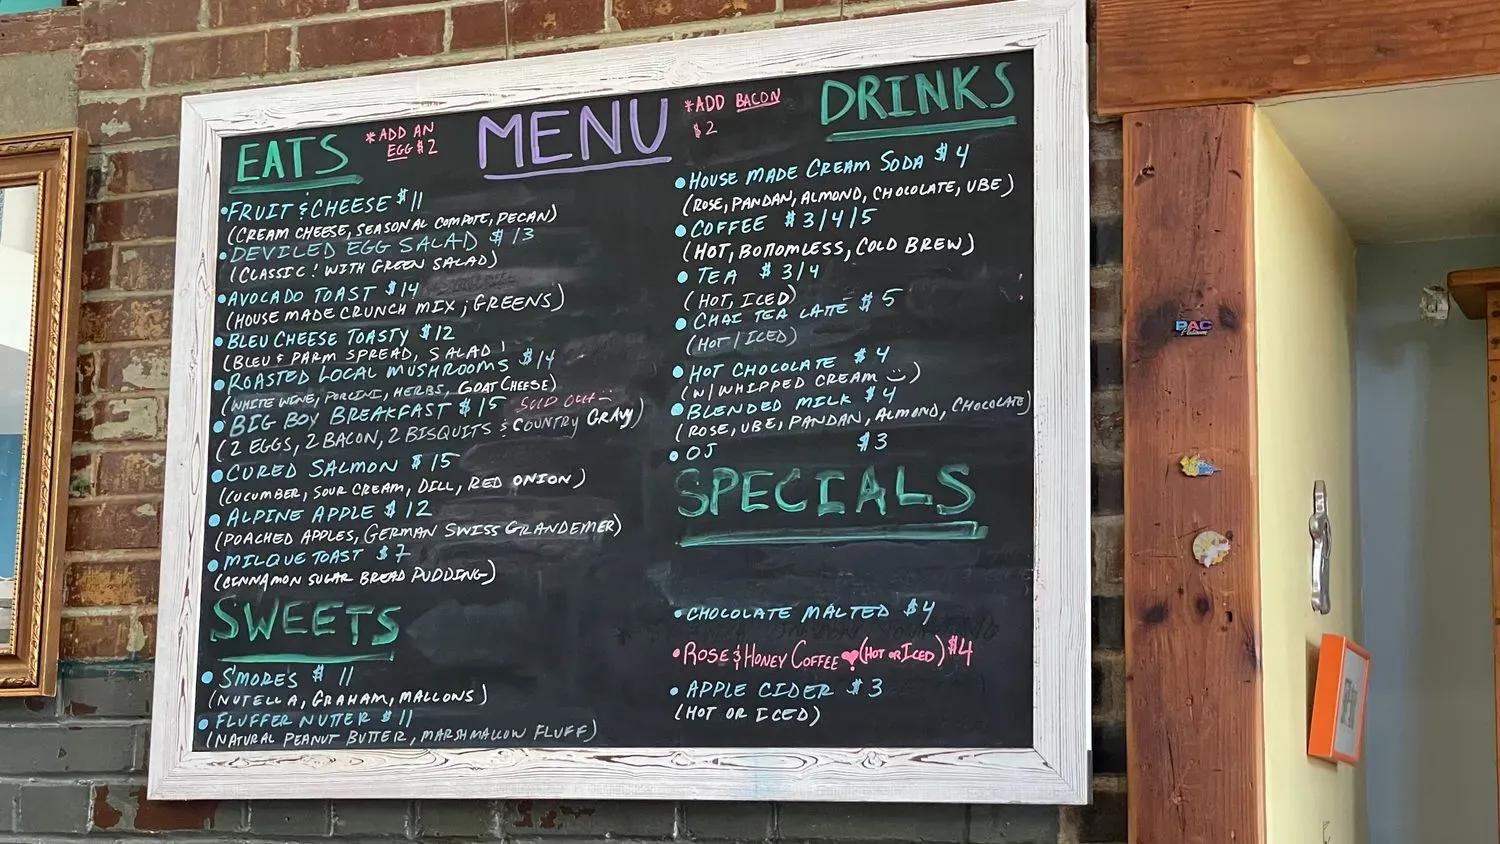 EATS
*ADD AN
EGG $2
MENU
*ADD BACON
$2
DRINKS
FRUIT & CHEESE $11
(CREAM CHEESE, SEASONAL COMPOTE, PECAN)
DEVILED EGG SALAD $13
(CLASSIC! WITH GREEN SALAD)
AVOCADO TOAST $14
(HOUSE MADE CRUNCH MIX ; GREENS)
BLEU CHEESE TOASTY $12
(BLEU & PARM SPREAD, SALAD)
ROASTED LOCAL MUSHROOMS $14
(WHITE WINE, PORCINI, HERBS, GOAT CHEESE)
BIG BOY BREAKFAST $15 SOLD OUT
(2 EGGS, 2 BACON, 2 BISQUITS & COUNTRY GRAVY)
CURED SALMON $15
(CUCUMBER, SOUR CREAM, DILL, RED ONION)
ALPINE APPLE $12
(POACHED APPLES, GERMAN SWISS GRANDEMER)
MILQUE TOAST $7
(CINNAMON SUGAR BREAD PUDDING)
SWEETS
S'MORES $11
(NUTELLA, GRAHAM, MALLONS)
FLUFFER NUTTER $11
(NATURAL PEANUT BUTTER, MARSHMALLOW FLUFF)
HOUSE MADE CREAM SODA $4
(ROSE, PANDAN, ALMOND, CHOCOLATE, UBE)
COFFEE $3/4/5
(HOT, BOTTOMLESS, COLD BREW)
TEA $3/4
(HOT, ICED)
CHAI TEA LATTE $5
(HOT/ICED)
HOT CHOCOLATE $4
(W/WHIPPED CREAM)
BLENDED MILK $4
(ROSE, UBE, PANDAN, ALMOND, CHOCOLATE)
OJ $3
SPECIALS
CHOCOLATE MALTED $4
ROSE & HONEY COFFEE (HOT OR ICED) $4
APPLE CIDER $3
(HOT OR ICED)
PAC